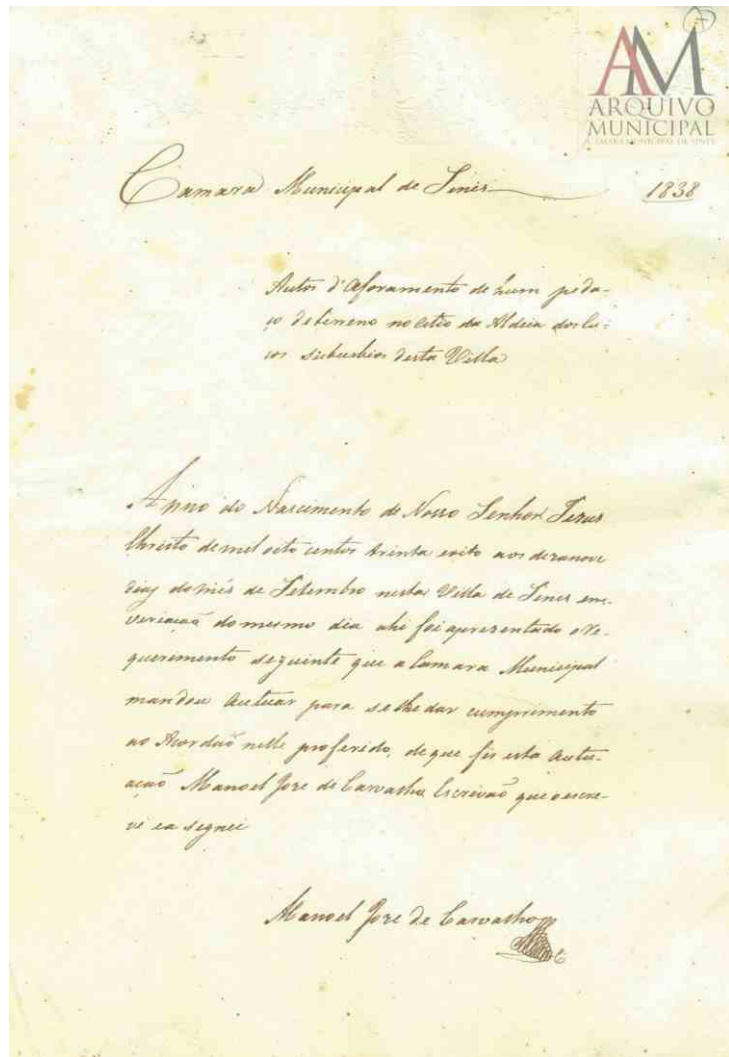 AM
ARQUIVO
MUNICIPAL
CAMARA MUNICIPAL DE SINES
Camara Municipal de Sines
1838
Autos d'Aforamento de hum peda-
ço de terreno no citio da Aldeia dos
suburbios desta Villa
Anno do Nascimento de Nosso Senhor Jezus
Christo de mil oito centos trinta eoito aos dezanove
dias do mês de Setembro nesta Villa de Sines em
veriação do mesmo dia ahi foi aprezentado o Re-
querimento seguinte que a Camara Municipal
mandou Autuar para se lhe dar cumprimento
ao Acordaõ nelle proferido, de que fis esta Autu-
açaõ Manoel Joze de Carvalho Escrivaõ que o escre-
vi ea signei
Manoel Joze de Carvalho